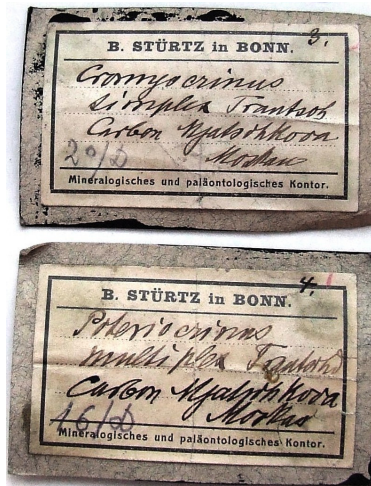 3.
B. STÜRTZ in BONN.
Cromyocrinus
simplex Trautsch
Carbon Mjatschkova
Moskau
20/D
Mineralogisches und paläontologisches Kontor.
4.
B. STÜRTZ in BONN.
Poteriocrinus
multiplex Trautschd
Carbon Mjatschkova
Moskau
16/D
Mineralogisches und paläontologisches Kontor.